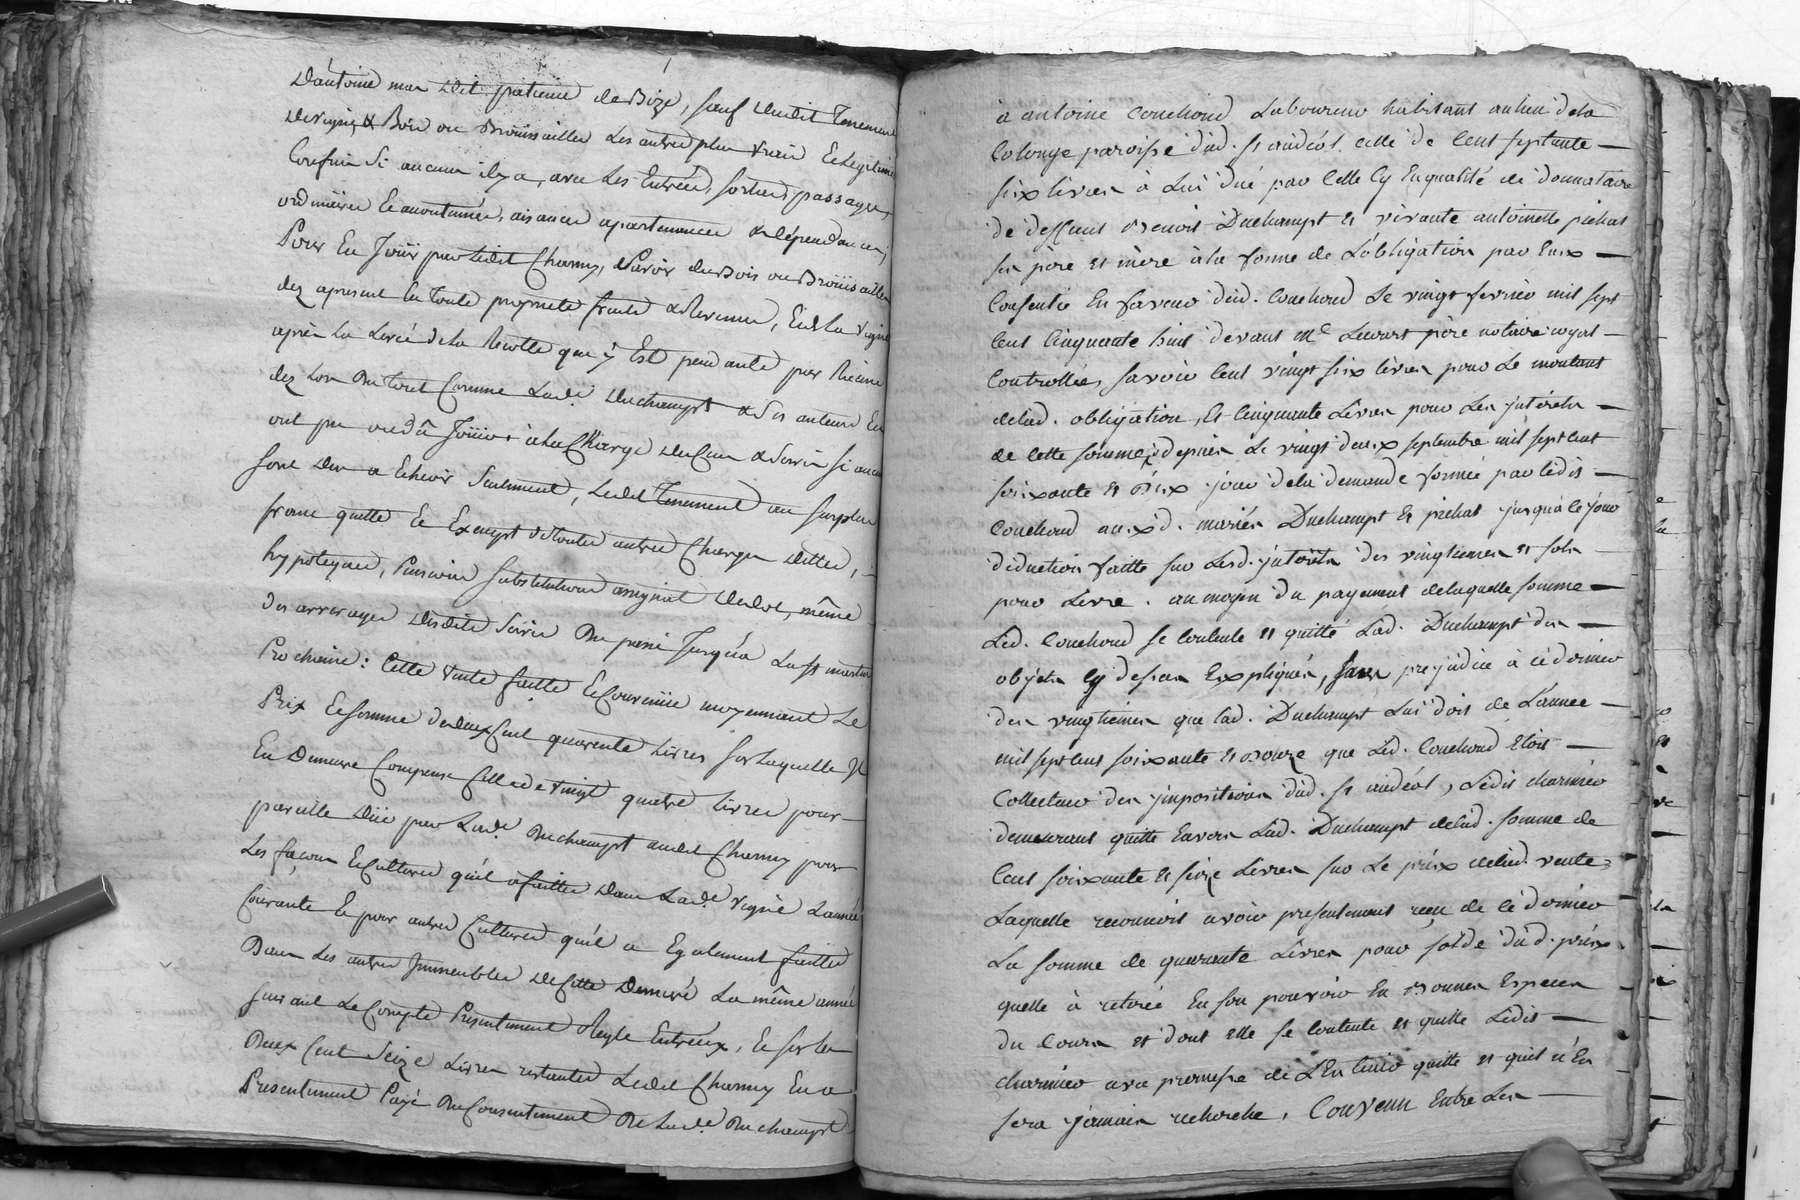 D'antoine mar dit patience de Bize, sauf dudit Tenement
de vigne & Bois ou Broüissailles Les autres plus vrais Et Legitimes
Confins Si aucuns il y a, avec Les Entrées, sorties, passages,
ordinaires Et accoutumés, aisances apartenances & dépendances,
Pour En Joüir par Ledit Charmy, Savoir du Bois ou Broüissailles
dez apresent En toute propriété fruits & Revenus, Et de La vigne
après La Levée de la Recolte que y Est pendante par Racine
dez Lors Du tout Comme Lad.e Duchampt & Ses auteurs En
ont pu ou dû Joüir à La Charge du Cens & Servis si aucun
sont dus a Echeoir Seulement, Ledit Tenement au surplus
franc quitte Et Exempt de toutes autres Charges dettes,
hypoteques, pensions substitutions assignat de dot, même
des arrerages desdits Servis Du passé Jusqu'a La St martin
Prochaine : Cette vente faitte Et Convenüe moyennant Le
Prix Et somme de deux Cent quarente Livres sur Laquelle Il
En Demeure Compensé Celle de vingt quatre Livres pour
pareille düe par Lad.e Duchampt audit Charmy pour
Les façons Et Cultures qu'il a faittes dans Lad.e vigne L'année
Courante Et pour autres Cultures qu'il a Egalement faittes
Dans Les autres Immeubles de Cette Demeuré La même année
suivant Le Compte Presentement Reglé Entr'eux, Et sur Les
Deux Cent Seize Livres restantes Ledit Charmy En a
Presentement Payé Du Consentement De Lad.e Duchampt
à antoine Couchoud Laboureur habitant au lieu de la
Colonge paroisse dud. St andéol celle de Cent septante
six livres à Lui düe par Celle Cy En qualité de donnataire
de deffunt Benoit Duchampt et vivante antoinette pichat
ses père et mère à la forme de L'obligation par Eux
Consentie En faveur dud. Couchoud Le vingt fevrier mil sept
Cent Cinquante huit devant Me père notaire royal
Controllée, savoir Cent vingt six livres pour Le montant
de lad. obligation, Et Cinquante Livres pour Les jnterêts
de Cette somme depuis Le vingt deux septembre mil sept Cent
soixante et Dix jour de la demande formée par Ledit
Couchoud aux d. mariés Duchampt Et pichat jusqu'à Ce jour
déduction faitte sur Lesd. jnterêts des vingtiemes et sols
pour Livre. au moyen du payement de laquelle somme
Led. Couchoud se Contente et quitte Lad. Duchampt des
objets Cy dessus Expliqués, sans prejudice à Ce dernier
des vingtiemes que Lad. Duchampt Lui doit de L'année
mil sept Cent soixante et Douze que Led. Couchoud Etoit
Collecteur des jmpositions dud. St andéol, Ledit charmier
demeurant quitte Envers Lad. Duchampt de lad. somme de
Cent soixante et seize Livres sur Le prix de lad. vente,
Laquelle reconnoit avoir presentement reçu de Ce dernier
La somme de quarante Livres pour solde dud. prix
quelle à retirée En son pouvoir En Bonnes Especes
du Cours et dont elle se Contente et quitte Ledit
charmier avec promesse de L'En tenir quitte et qu'il n'En
sera jamais recherché, Convenu Entre Les